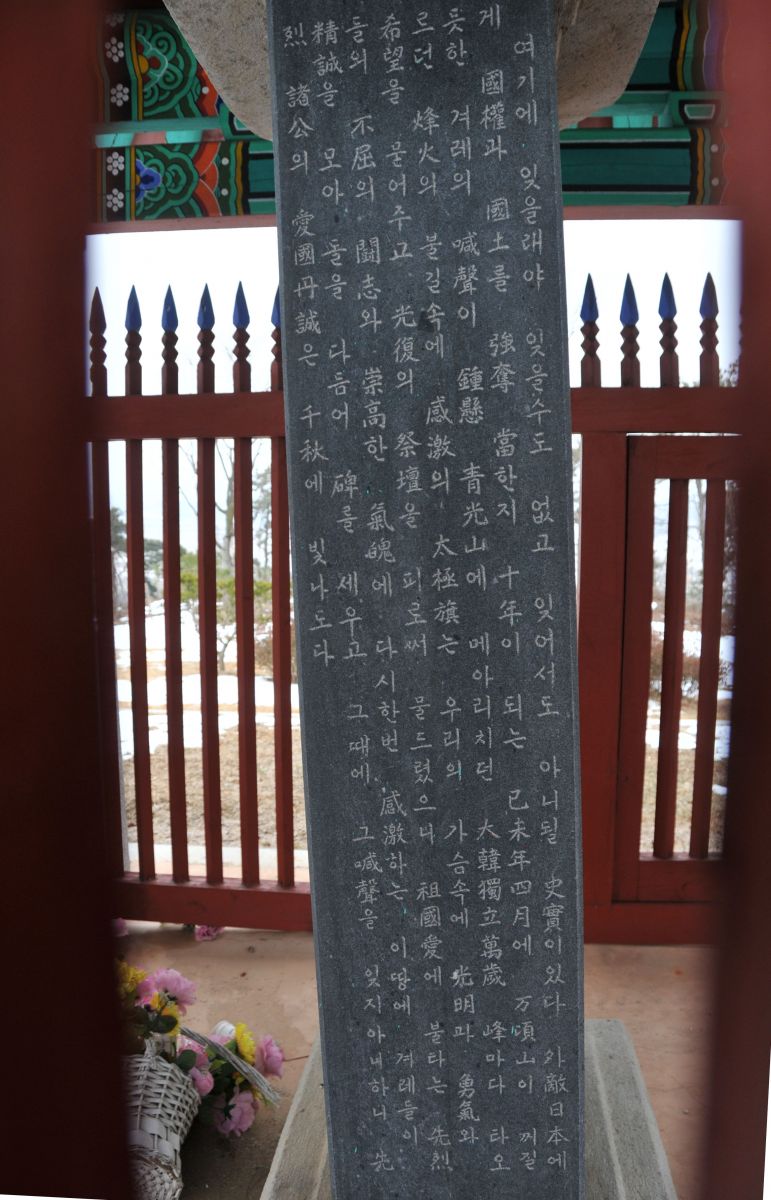 여기에 잊을래야 잊을수도 없고 잊어서도 아니될 史實이있다 外敵日本에
게 國權과 國土를 強奪 當한지 十年이 되는 己未年四月에 万頃山이 꺼질
듯한 겨레의 喊聲이 鍾懸 青光山에 메아리치던 大韓獨立萬歲 峰마다 타오
르던 烽火의 불길속에 感激의 太極旗는 우리의 가슴속에 光明과 勇氣와
希望을 묻어주고 光復의 祭壇을 피로써 물드렸으니 祖國愛에 불타는 先烈
들의 不屈의 鬪志와 崇高한 氣魄에 다시한번 感激하는 이땅에 겨레들이
精誠을 모아 돌을 다듬어 碑를 세우고 그때에 그喊聲을 잊지아니하니 先
烈 諸公의 愛國丹誠은 千秋에 빛나도다